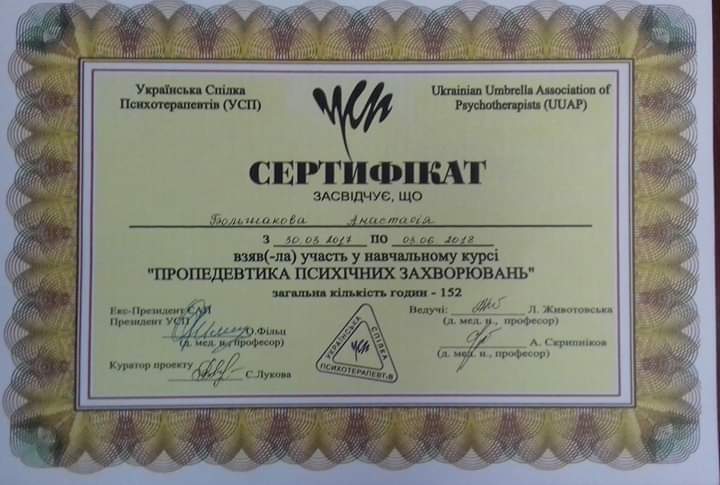 Українська Спілка
Психотерапевтів (УСП)
усп
Ukrainian Umbrella Association of
Psychotherapists (UUAP)
СЕРТИФІКАТ
ЗАСВІДЧУЄ, ЩО
Большакова Анастасія
з 30.03 2017 по 03.06 2018
взяв(-ла) участь у навчальному курсі
"ПРОПЕДЕВТИКА ПСИХІЧНИХ ЗАХВОРЮВАНЬ"
загальна кількість годин - 152
Екс-Президент САП
Президент УСП
О.Фільц
(д. мед. н., професор)
Куратор проекту
С.Лукова
УКРАЇНСЬКА СПІЛКА ПСИХОТЕРАПЕВТІВ
усп
Ведучі: Л. Животовська
(д. м. н., професор)
А. Скрипніков
(д. мед. н., професор)